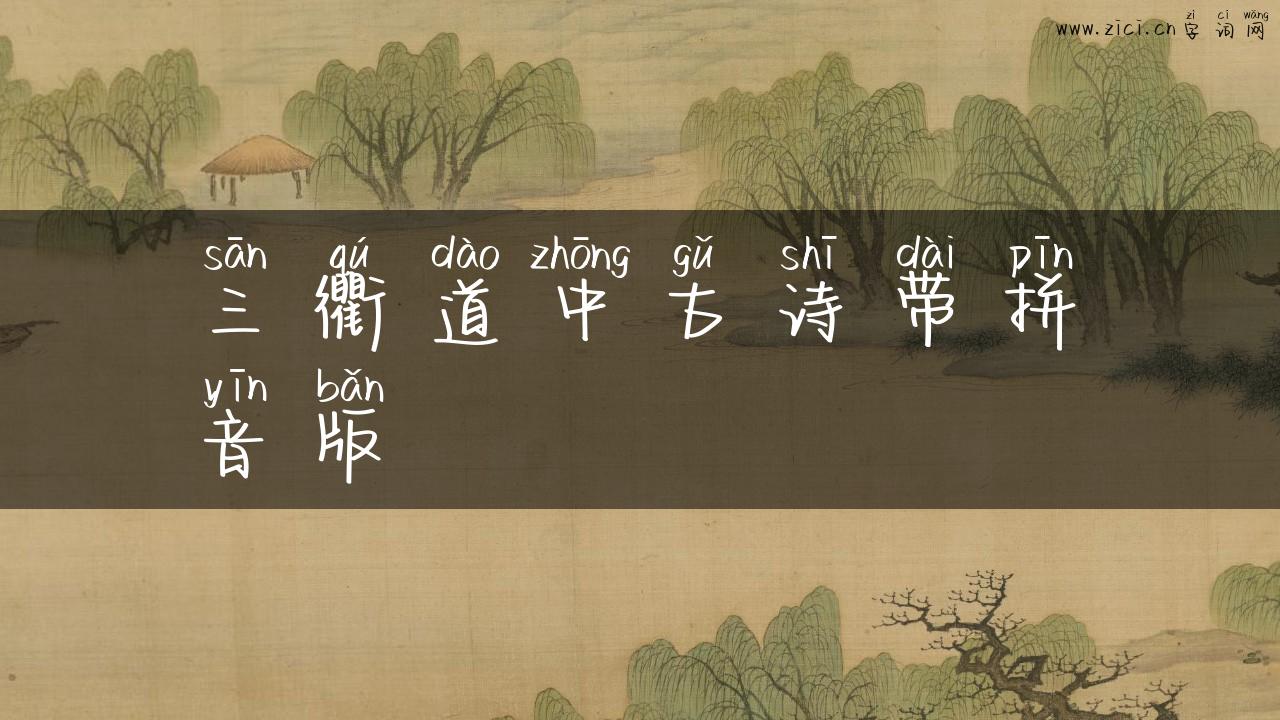 zì cí wǎng
www.zici.cn 字 词 网
sān qú dào zhōng gǔ shī dài pīn
三 衢 道 中 古 诗 带 拼
yīn bǎn
音 版